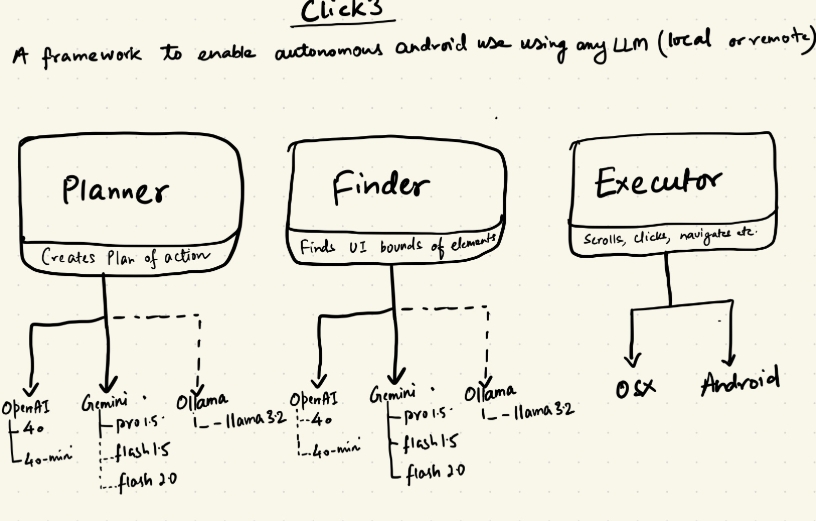 Click3
A framework to enable autonomous android use using any LLM (local or remote)
Planner
Creates Plan of action
OpenAI
4o
4o-mini
Gemini
pro 1.5
flash 1.5
flash 2.0
Ollama
llama 3.2
Finder
Finds UI bounds of elements
OpenAI
4o
4o-mini
Gemini
pro 1.5
flash 1.5
flash 2.0
Ollama
llama 3.2
Executor
Scrolls, clicks, navigates etc.
OSX
Android